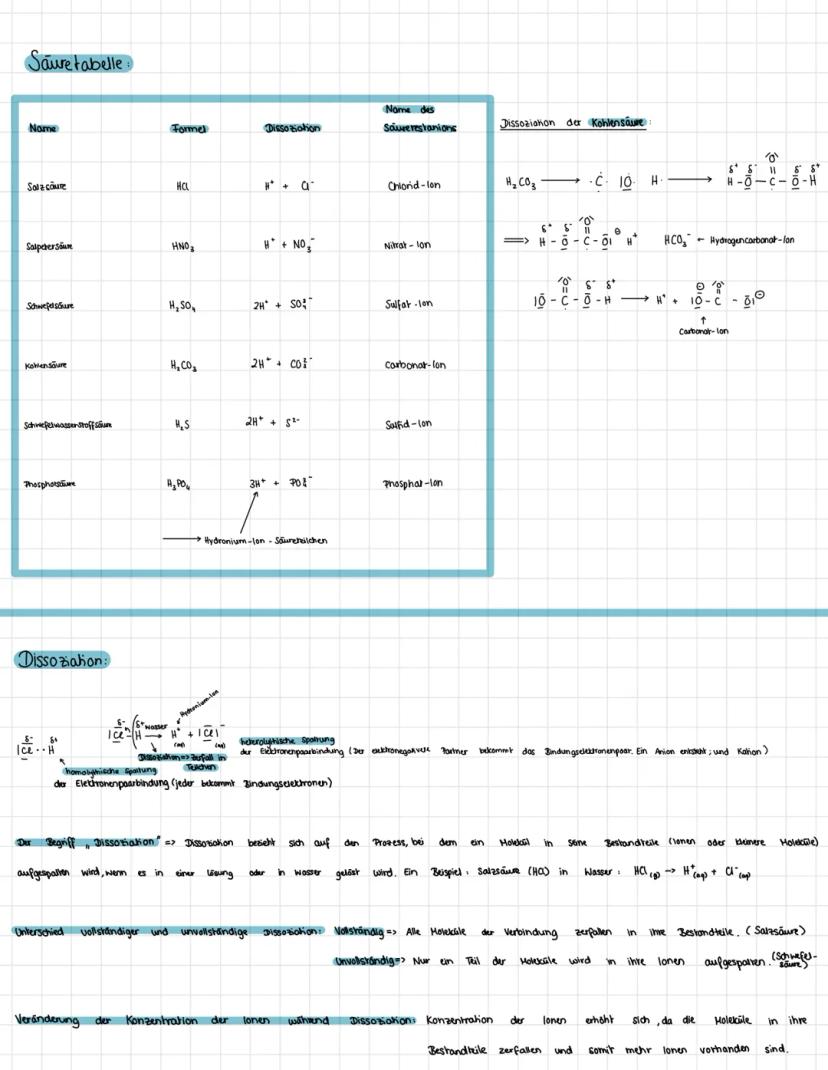 Säuretabelle:
Name Formel Dissoziation Name des Säurerestanions
Salzsäure HCl H⁺ + Cl⁻ Chlorid-Ion
Salpetersäure HNO₃ H⁺ + NO₃⁻ Nitrat-Ion
Schwefelsäure H₂SO₄ 2H⁺ + SO₄²⁻ Sulfat-Ion
Kohlensäure H₂CO₃ 2H⁺ + CO₃²⁻ Carbonat-Ion
Schwefelwasserstoffsäure H₂S 2H⁺ + S²⁻ Sulfid-Ion
Phosphorsäure H₃PO₄ 3H⁺ + PO₄³⁻ Phosphat-Ion
→ Hydronium-Ion - Säureteilchen
Dissoziation der Kohlensäure:
H₂CO₃ → ·C· |O· H· → H-O-C-O-H
δ⁺ δ⁻ |O| δ⁻ δ⁺
⇒ H-O-C-O|⊖ H⁺ HCO₃⁻ ← Hydrogencarbonat-Ion
δ⁺ δ⁻ |O|
|O-C-O-H → H⁺ + |O-C-O|⊖
|O| δ⁻ δ⁺ ⊖ |O|
↑
Carbonat-Ion
Dissoziation:
δ⁻ δ⁺
|Cl··H
homolythische Spaltung
der Elektronenpaarbindung (jeder bekommt Bindungselektronen)
Hydronium-Ion
δ⁻ δ⁺ Wasser
|Cl-H → H⁺ + |Cl|⁻
(aq) (aq)
Dissoziation => Zerfall in
Teilchen
heterolythische Spaltung
der Elektronenpaarbindung (Der elektronegativere Partner bekommt das Bindungselektronenpaar. Ein Anion entsteht; und Kation)
Der Begriff „Dissoziation" => Dissoziation bezieht sich auf den Prozess, bei dem ein Molekül in seine Bestandteile (Ionen oder kleinere Moleküle)
aufgespalten wird, wenn es in einer Lösung oder in Wasser gelöst wird. Ein Beispiel: Salzsäure (HCl) in Wasser: HCl (g) → H⁺(aq) + Cl⁻(aq)
Unterschied vollständiger und unvollständige Dissoziation: Vollständig => Alle Moleküle der Verbindung zerfallen in ihre Bestandteile. (Salzsäure)
Unvollständig => Nur ein Teil der Moleküle wird in ihre Ionen aufgespalten. (Schwefelsäure)
Veränderung der Konzentration der Ionen während Dissoziation: Konzentration der Ionen erhöht sich, da die Moleküle in ihre
Bestandteile zerfallen und somit mehr Ionen vorhanden sind.